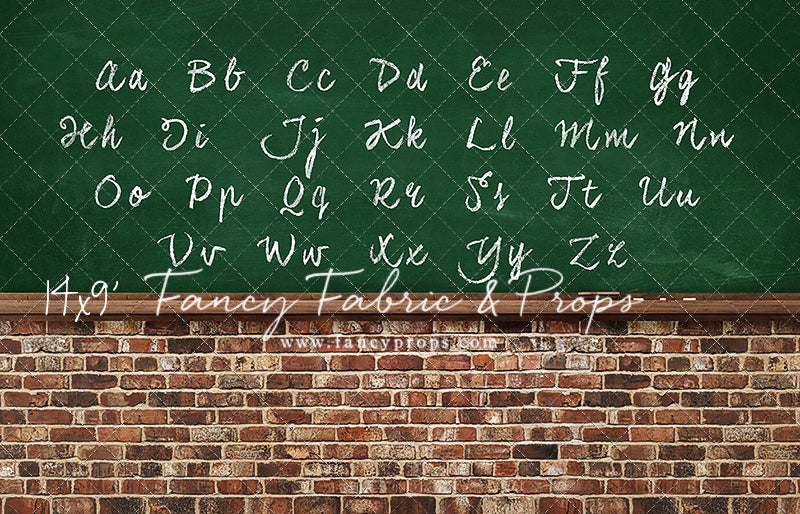 Aa Bb Cc Dd Ee Ff Gg
Hh Ii Jj Kk Ll Mm Nn
Oo Pp Qq Rr Ss Tt Uu
Vv Ww Xx Yy Zz
14x9' Fancy Fabric & Props
www.fancyprops.com